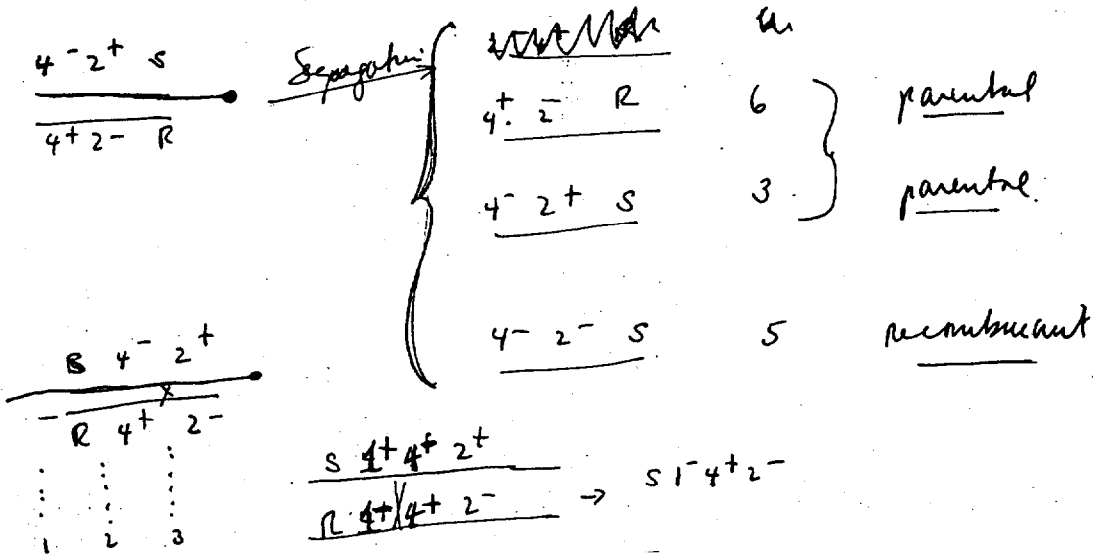 4⁻ 2⁺ S
4⁺ 2⁻ R
4⁺ 2⁻ R 6 parental
4⁻ 2⁺ S 3 parental.
4⁻ 2⁻ S 5 recombinant
4⁻ 2⁺
R 4⁺ 2⁻
1 2 3
S 1⁺ 4⁺ 2⁺
R 4⁺ 4⁺ 2⁻ → S 1⁻ 4⁺ 2⁻